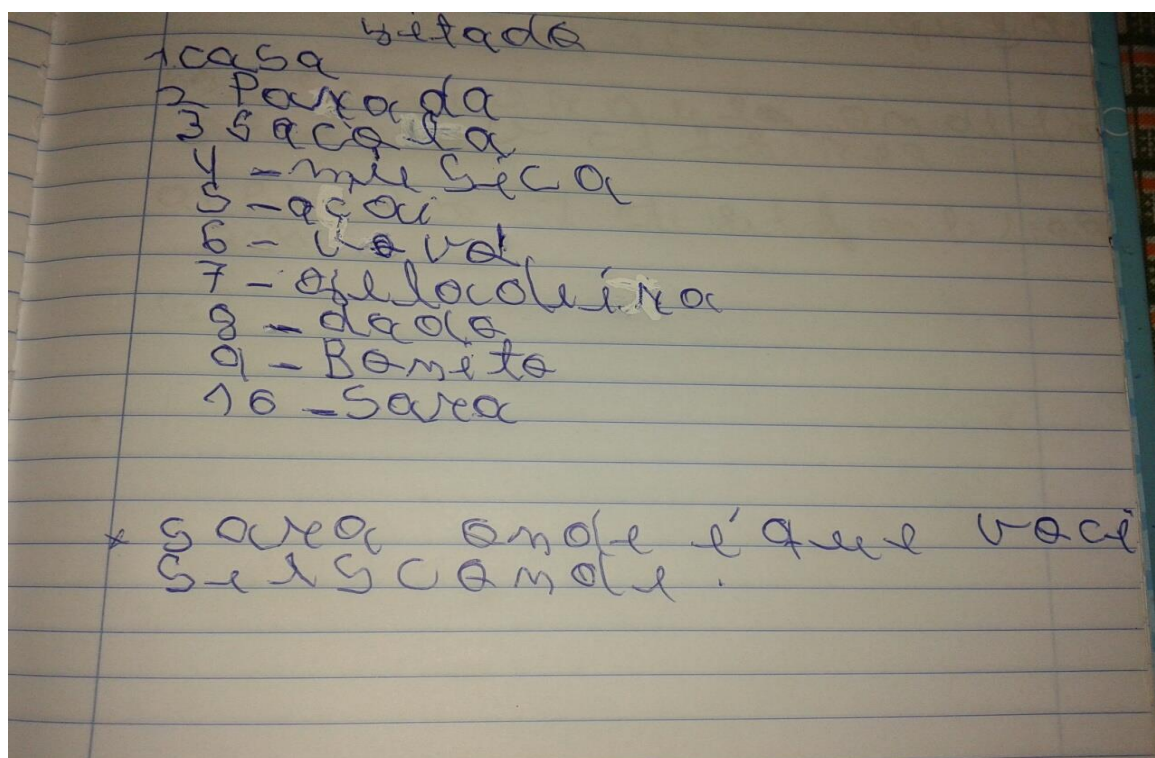 ditado
1 casa
2 Parada
3 Sacola
4 - musica
5 - açai
6 - vovó
7 - geladeira
8 - dado
9 - Bonito
10 - Sara
* Sara onde é que você
se escande.